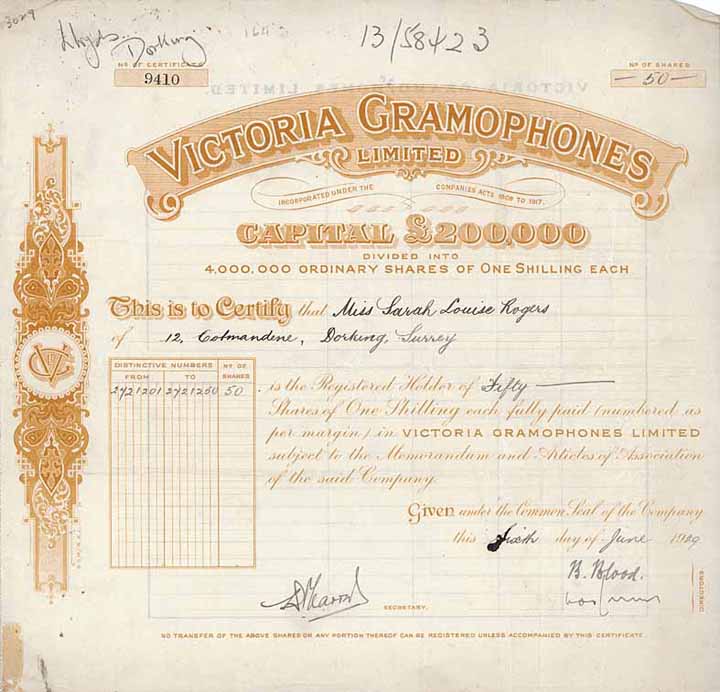 3029
Lloyds Dorking
13/58423
Nº OF CERTIFICATE
9410
Nº OF SHARES
— 50 —
VICTORIA GRAMOPHONES
LIMITED
INCORPORATED UNDER THE COMPANIES ACTS 1908 TO 1917.
CAPITAL £200,000
DIVIDED INTO
4,000,000 ORDINARY SHARES OF ONE SHILLING EACH
This is to Certify that Miss Sarah Louise Rogers
of 12, Cotmandene, Dorking, Surrey
DISTINCTIVE NUMBERS Nº OF
FROM TO SHARES
2721201 2721250 50
is the Registered Holder of Fifty
Shares of One Shilling each fully paid (numbered as
per margin) in VICTORIA GRAMOPHONES LIMITED
subject to the Memorandum and Articles of Association
of the said Company.
Given under the Common Seal of the Company
this Sixth day of June 1929
B. Blood.
DIRECTORS
SECRETARY.
NO TRANSFER OF THE ABOVE SHARES OR ANY PORTION THEREOF CAN BE REGISTERED UNLESS ACCOMPANIED BY THIS CERTIFICATE.